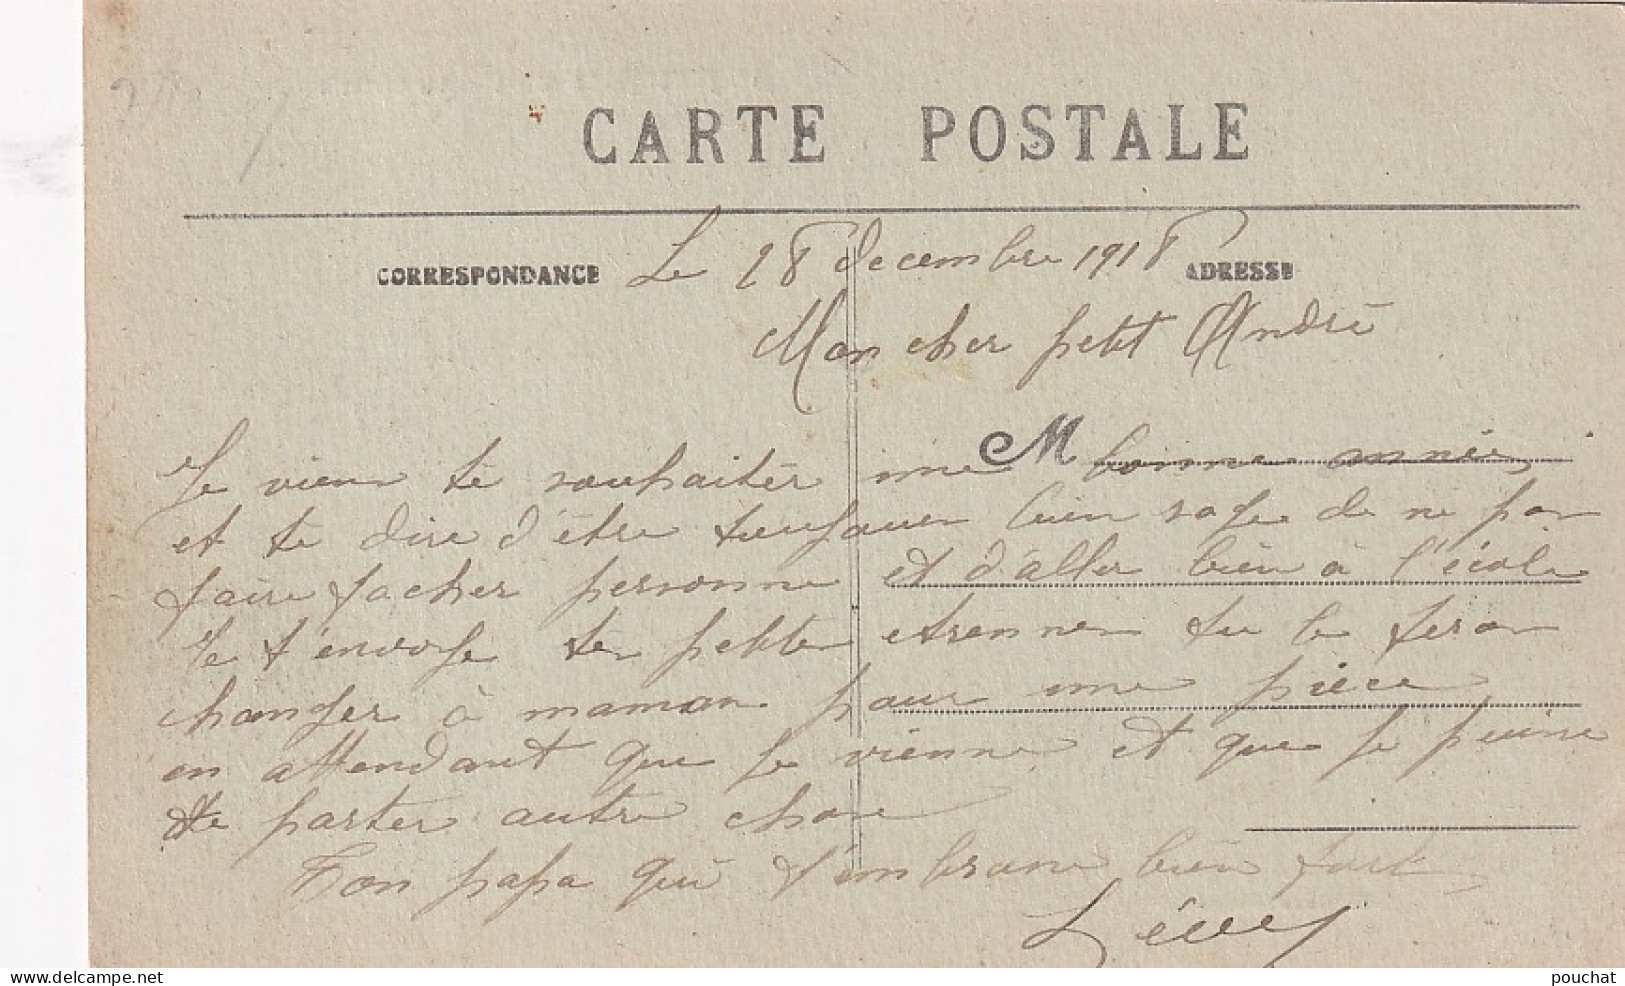 CARTE POSTALE
CORRESPONDANCE
ADRESSE
Le 28 decembre 1918
Mon cher petit André
M
Je viens te souhaiter une bonne année,
et te dire d'être toujours bien sage de ne pas
faire facher personne et d'aller bien à l'école
Je t'envoye tes petites etrennes tu le feras
changer à maman pour une pièce
en attendant que je vienne et que je puise
te porter autre chose
Ton papa qui t'embrasse bien fort,
delcampe.net
pouchat